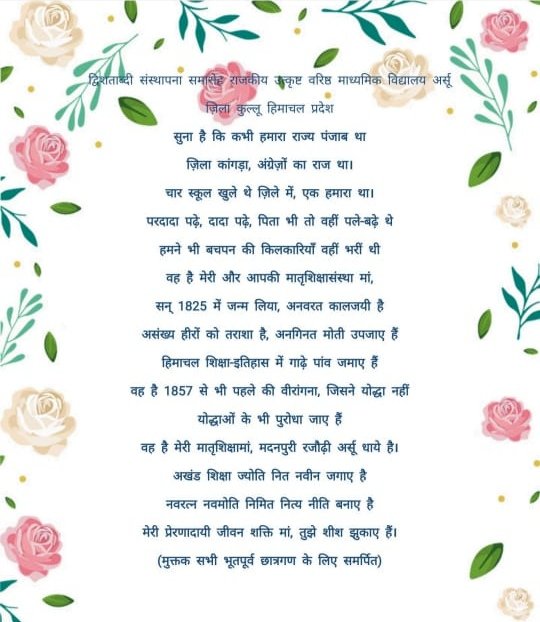 द्विशताब्दी संस्थापना समारोह राजकीय उत्कृष्ट वरिष्ठ माध्यमिक विद्यालय अर्सू
ज़िला कुल्लू हिमाचल प्रदेश
सुना है कि कभी हमारा राज्य पंजाब था
ज़िला कांगड़ा, अंग्रेज़ों का राज था।
चार स्कूल खुले थे ज़िले में, एक हमारा था।
परदादा पढ़े, दादा पढ़े, पिता भी तो वहीं पले-बढ़े थे
हमने भी बचपन की किलकारियाँ वहीं भरीं थी
वह है मेरी और आपकी मातृशिक्षासंस्था मां,
सन् 1825 में जन्म लिया, अनवरत कालजयी है
असंख्य हीरों को तराशा है, अनगिनत मोती उपजाए हैं
हिमाचल शिक्षा-इतिहास में गाढ़े पांव जमाए हैं
वह है 1857 से भी पहले की वीरांगना, जिसने योद्धा नहीं
योद्धाओं के भी पुरोधा जाए हैं
वह है मेरी मातृशिक्षामां, मदनपुरी रजौढ़ी अर्सू धाये है।
अखंड शिक्षा ज्योति नित नवीन जगाए है
नवरत्न नवमोति निमित नित्य नीति बनाए है
मेरी प्रेरणादायी जीवन शक्ति मां, तुझे शीश झुकाए हैं।
(मुक्तक सभी भूतपूर्व छात्रगण के लिए समर्पित)